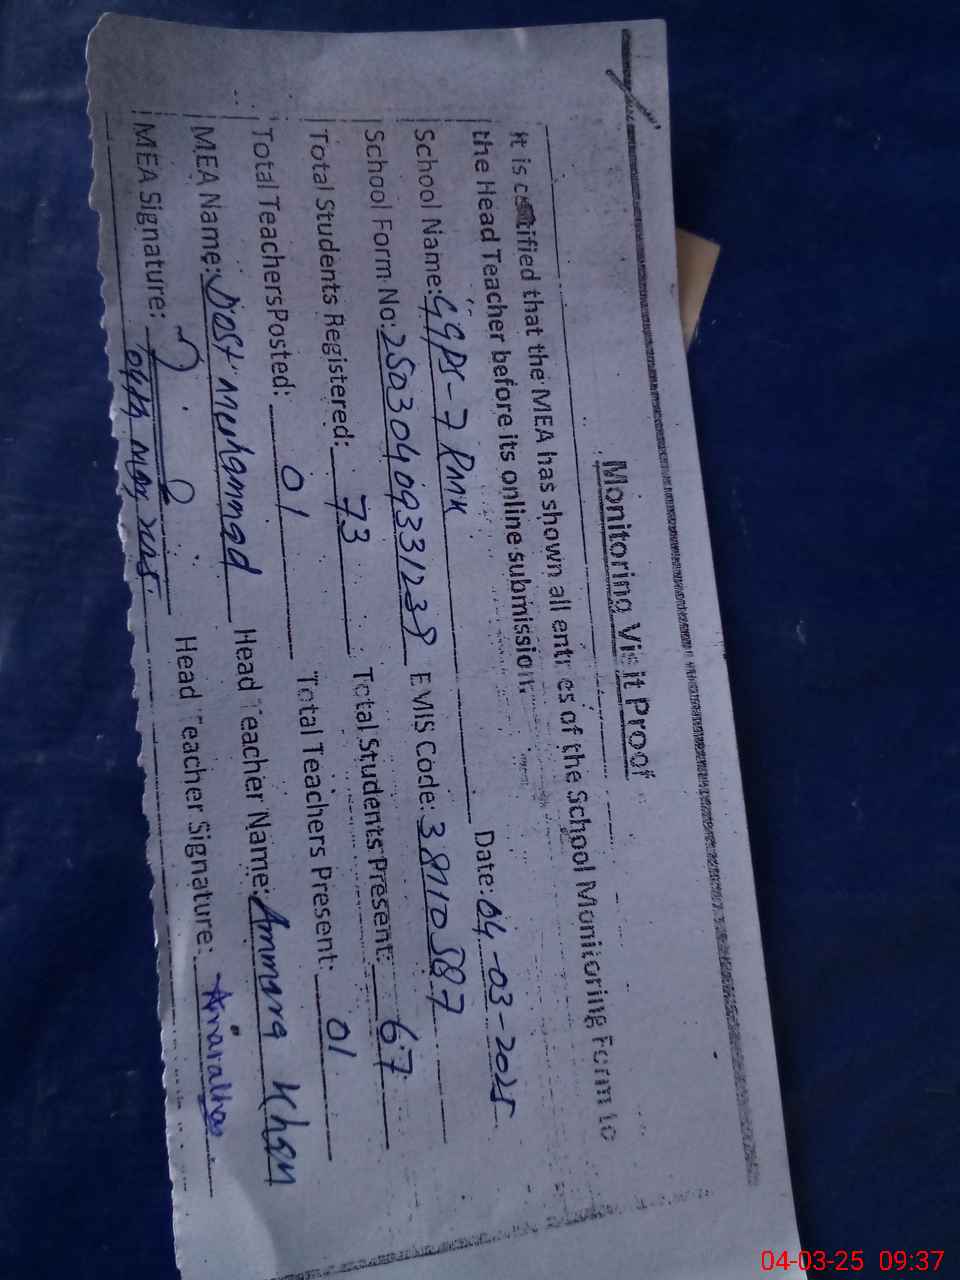 Monitoring Visit Proof
It is certified that the MEA has shown all entries of the School Monitoring Form to
the Head Teacher before its online submission.
School Name: GGPS-7 RMK Date: 04-03-2025
School Form No: 2503040933123 EMIS Code: 38110387
Total Students Registered: 73 Total Students Present: 67
Total Teachers Posted: 01 Total Teachers Present: 01
MEA Name: Dost Muhammad Head Teacher Name: Ammara Khan
MEA Signature: Head Teacher Signature:
04th Mar, 2025.
04-03-25 09:37